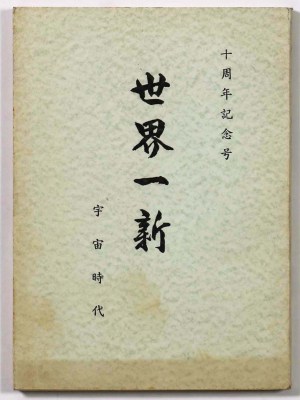 十周年記念号
世界一新
宇宙時代